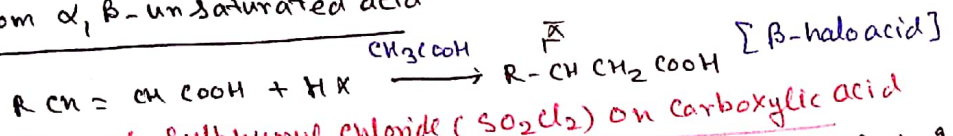 om α, β-unsaturated acid
R CH = CH COOH + HX CH3COOH → R-CH CH2 COOH [β-haloacid]
X
chloride (SO2Cl2) on Carboxylic acid